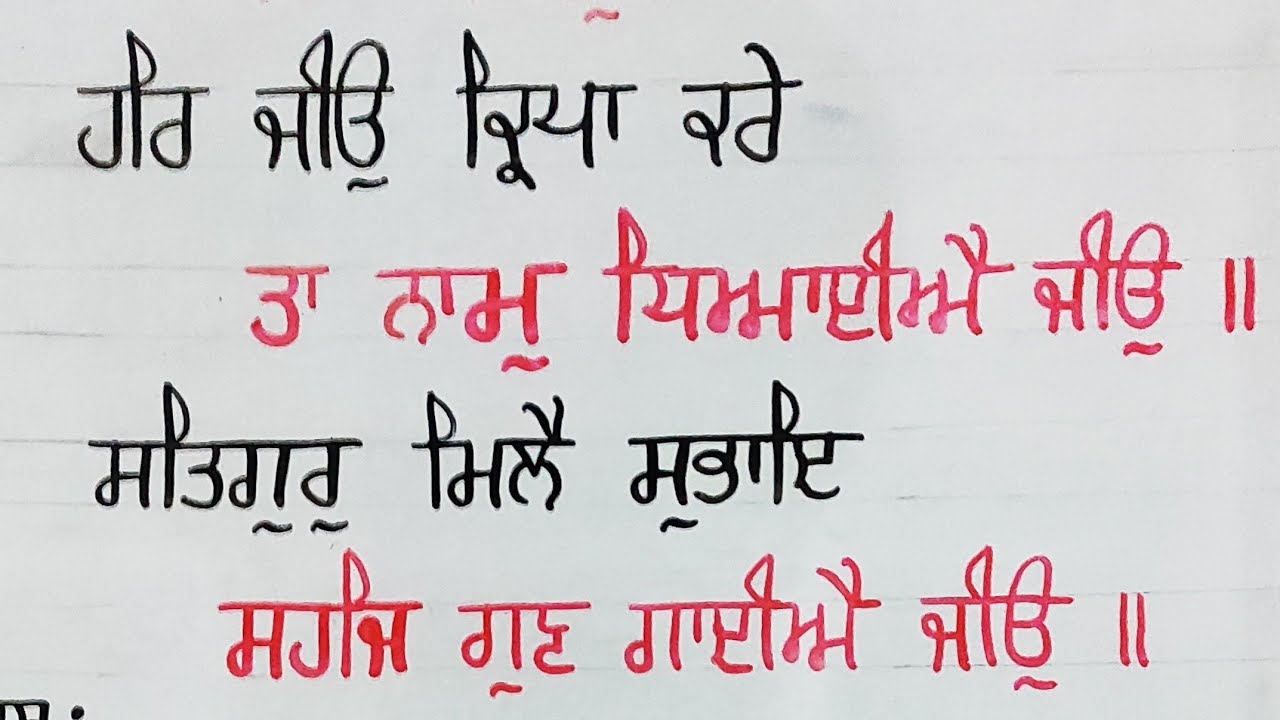 ਹਰਿ ਜੀਉ ਕ੍ਰਿਪਾ ਕਰੇ
ਤਾ ਨਾਮੁ ਧਿਆਈਐ ਜੀਉ ॥
ਸਤਿਗੁਰੁ ਮਿਲੈ ਸੁਭਾਇ
ਸਹਜਿ ਗੁਣ ਗਾਈਐ ਜੀਉ ॥